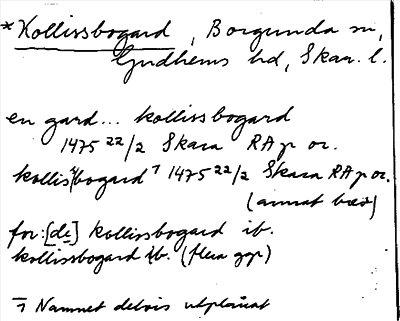 *Kollissbogard, Borgunda sn,
Gudhems hd, Skar. l.
en gard... kollissbogard
1475 22/2 Skara RAp or.
kollis bogard ⁊ 1475 22/2 Skara RAp or.
(annat brev)
for: [de] kollissbogard ib.
kollissbogard ib. (flera ggr)
⁊ Namnet delvis utplånat